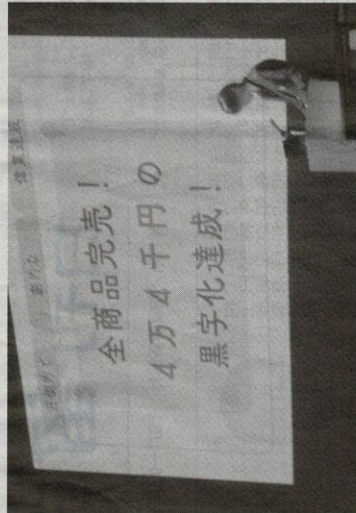 全商品完売!
4万4千円の
黒字化達成!